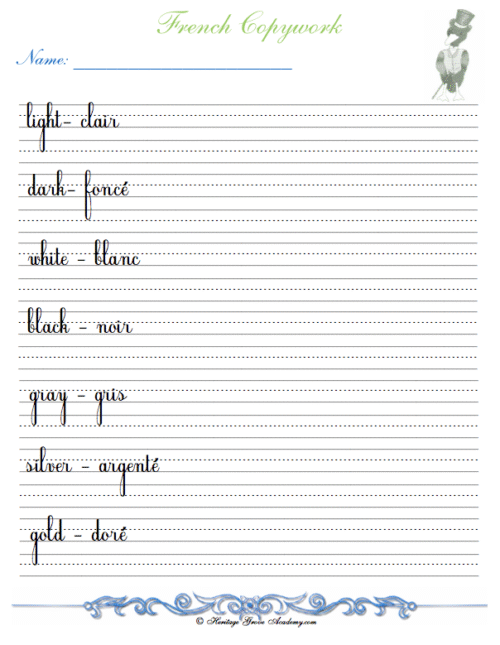 French Copywork
Name:
light- clair
dark- foncé
white - blanc
black - noir
gray - gris
silver - argenté
gold - doré
© Heritage Grove Academy.com